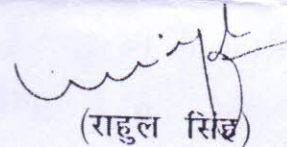 (राहुल सिंह)